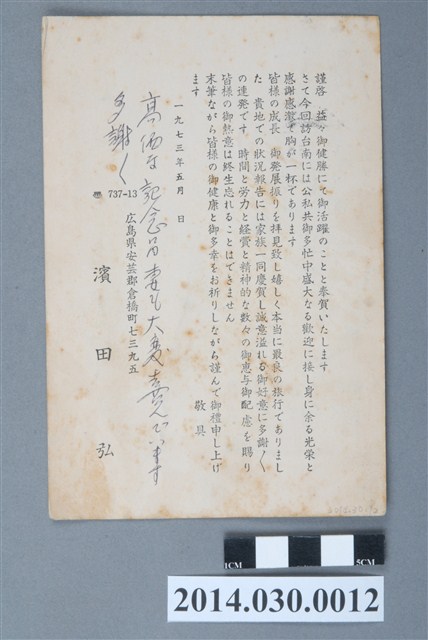 謹啓　益々御健勝にて御活躍のことと奉賀いたします
さて今回訪台南には公私共御多忙中盛大なる歓迎に接し身に余る光栄と
感謝感激で胸が一杯であります
皆様の成長　御発展振りを拝見致し嬉しく本当に最良の旅行でありまし
た　貴地での状況報告には家族一同慶賀し誠意溢れる御好意に多謝〱
の連発です　時間と労力と経費と精神的な数々の御恵与御配慮を賜り
皆様の御熱意は終生忘れることはできません
末筆ながら皆様の御健康と御多幸をお祈りしながら謹んで御禮申し上げ
ます
敬具
一九七三年五月　日
高価な記念品妻も大変喜んでいます
多謝〱
〒737-13
広島県安芸郡倉橋町七三九五
濱田弘
1CM 5CM
2014.030.0012